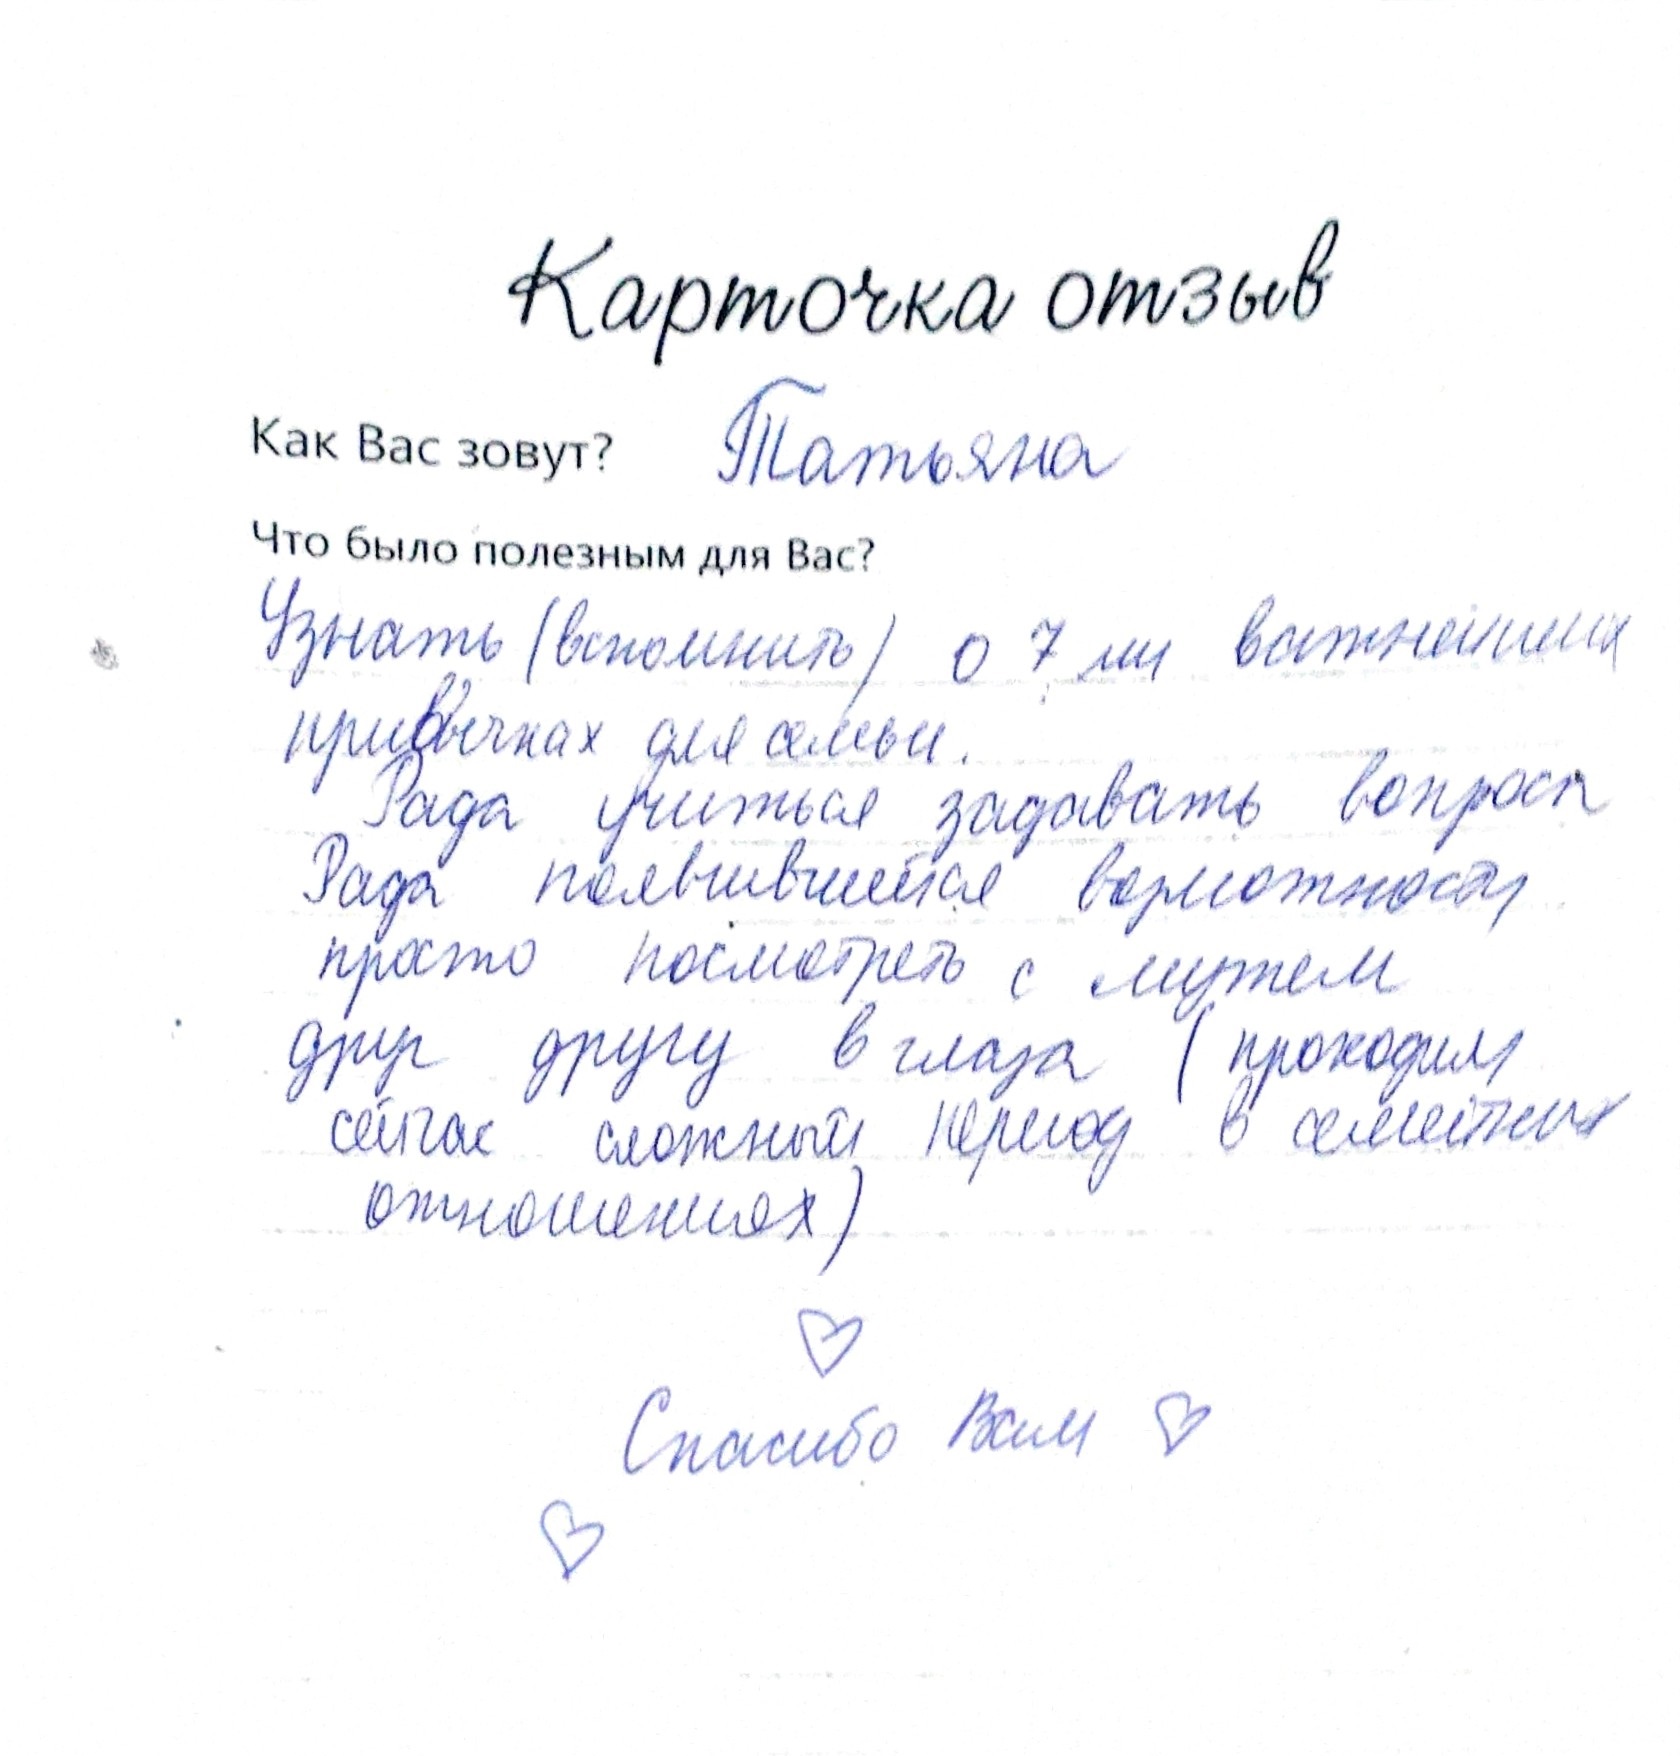 Карточка отзыв
Как Вас зовут? Татьяна
Что было полезным для Вас?
Узнать (вспомнить) о 7 ми важнейших
привычках для семьи.
Рада учиться задавать вопросы
Рада появившейся возможности
просто посмотреть с мужем
друг другу в глаза (проходим
сейчас сложный период в семейных
отношениях)
Спасибо Вам